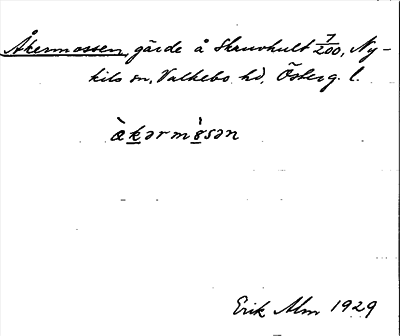 Åkermossen, gärde å Skruvhult 7/200, Ny-
kils sn, Valkebo hd, Österg. l.
æ̀kərmo̊̀sən
Erik Alm 1929